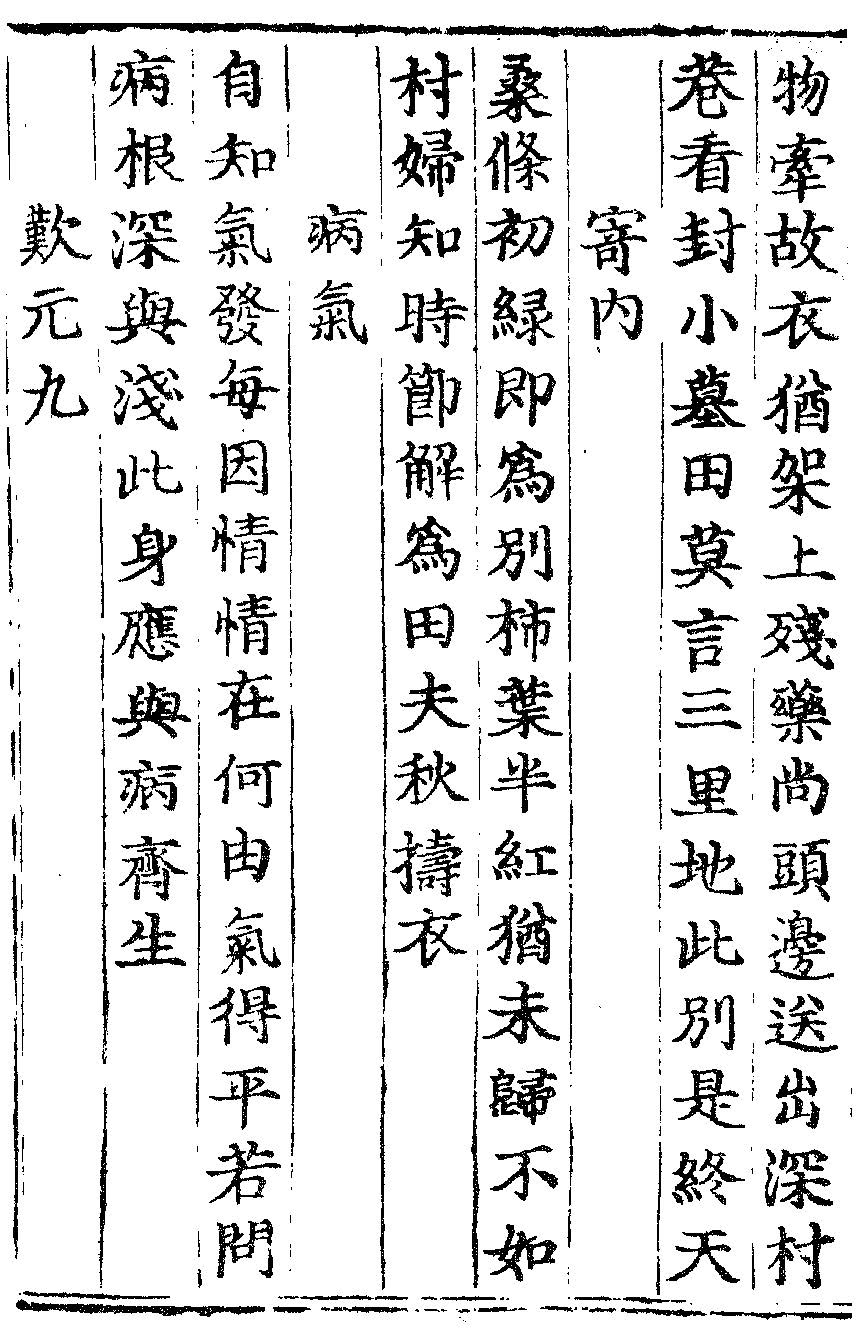 物牽故衣猶架上殘藥尚頭邊送出深村
巷看封小墓田莫言三里地此別是終天
寄内
桑條初緑即爲別柿葉半紅猶未歸不如
村婦知時節解爲田夫秋擣衣
病氣
自知氣發每因情情在何由氣得平若問
病根深與淺此身應與病齊生
歎元九